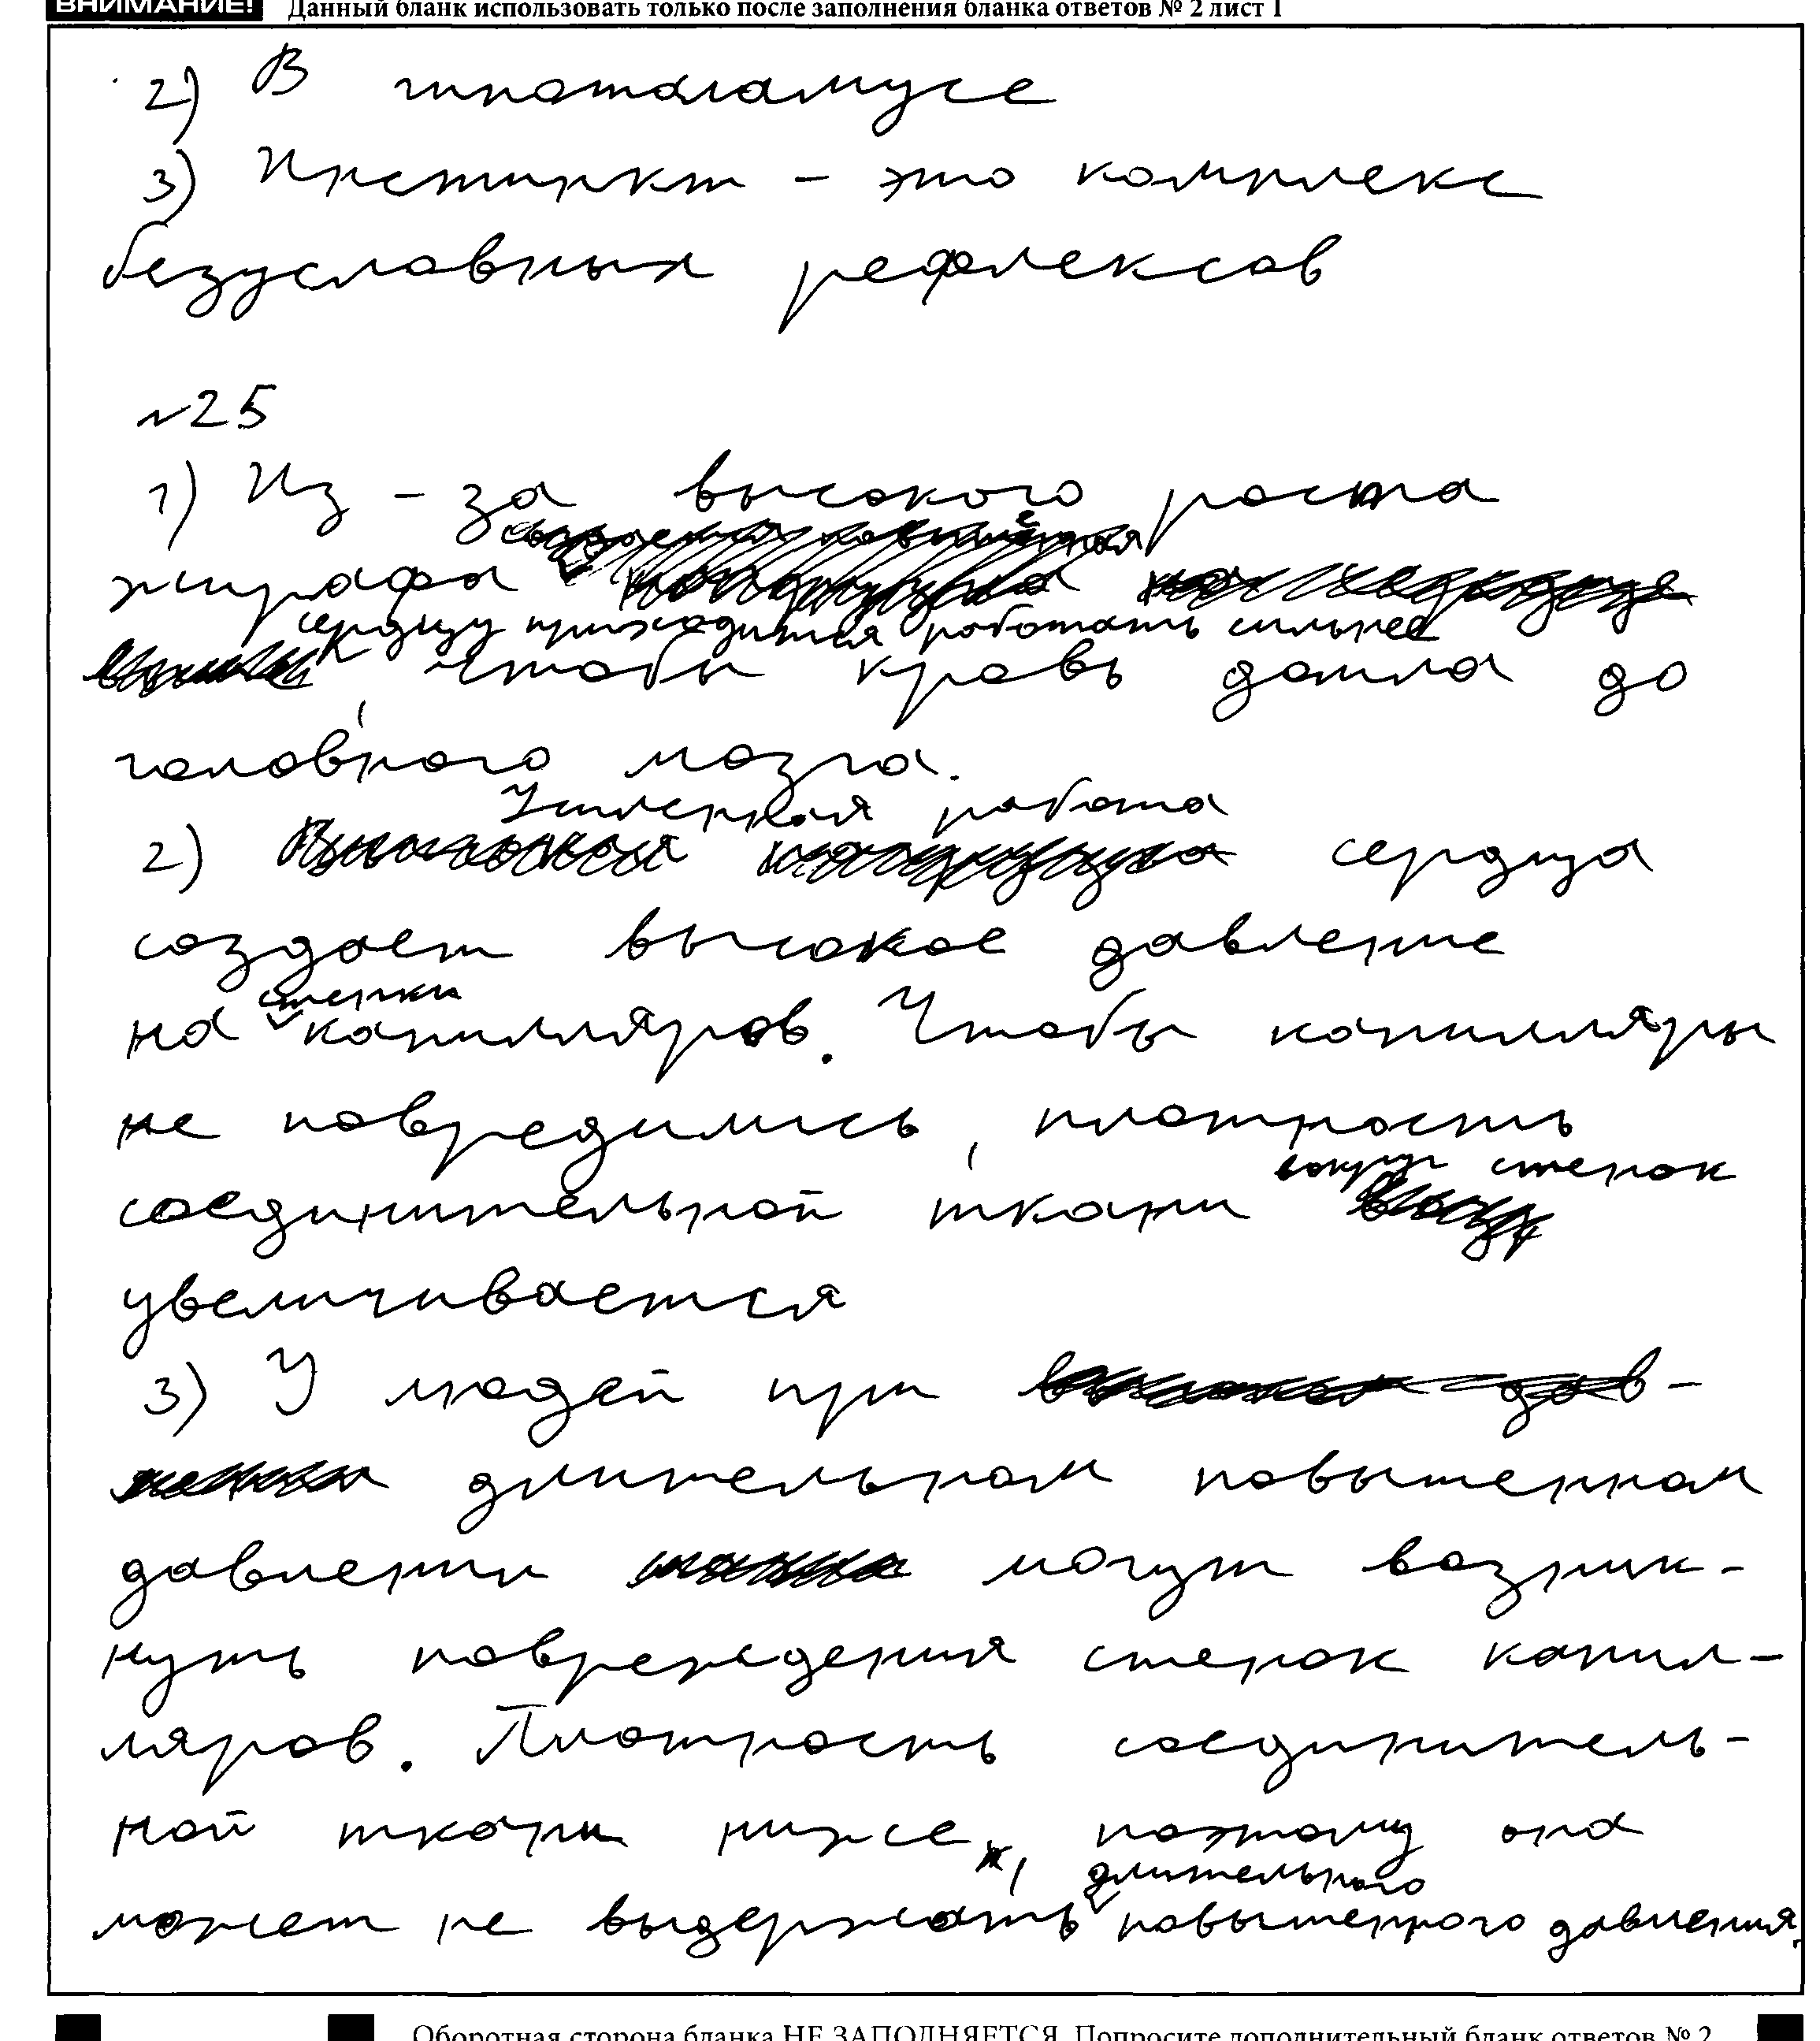 ВНИМАНИЕ! Данный бланк использовать только после заполнения бланка ответов № 2 лист 1
2) В гипоталамусе
3) Инстинкт - это комплекс
безусловных рефлексов
№25
1) Из-за высокого роста
жирафа
сердцу приходится работать сильнее
, чтобы кровь дошла до
головного мозга.
Усиленная работа
2) сердца
создает высокое давление
стенки
на капилляров. Чтобы капилляры
не повредились, плотность
вокруг стенок
соединительной ткани
увеличивается
3) У людей при
длительном повышенном
давлении могут возник-
нуть повреждения стенок капил-
ляров. Плотность соединитель-
ной ткани ниже, поэтому она
длительного
может не выдержать повышенного давления.
Оборотная сторона бланка НЕ ЗАПОЛНЯЕТСЯ. Попросите дополнительный бланк ответов № 2